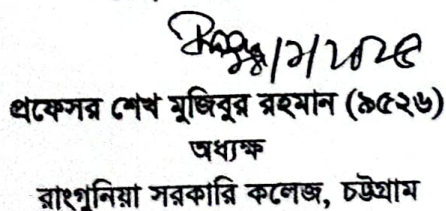 প্রফেসর শেখ মুজিবুর রহমান (৯৫২৬)
অধ্যক্ষ
রাংগুনিয়া সরকারি কলেজ, চট্টগ্রাম